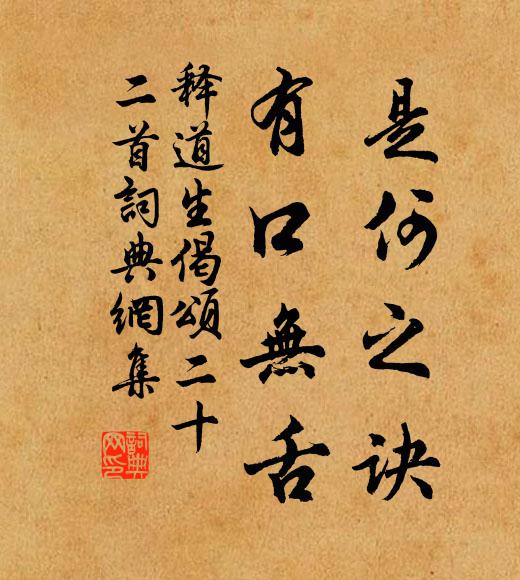 是何之訣
有口無舌
释道生偈頌二十
二首詞典網集
詞典
网印